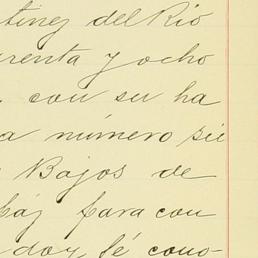 tinez del Rio
renta y ocho
con su ha
a número sie
Bajos de
para con
doy fé cono-